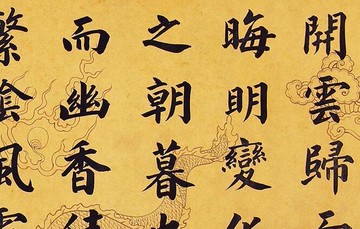 開雲歸而
晦明變化
之朝暮也
而幽香佳
繁陰風霜